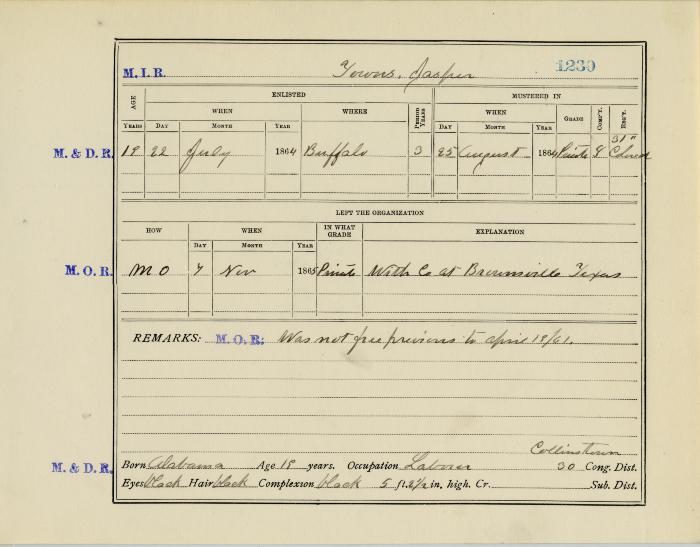 M. I. R. Towns, Jasper 1230
AGE ENLISTED MUSTERED IN
WHEN WHERE PERIOD YEARS WHEN GRADE COMP'Y. REG'T.
YEARS DAY MONTH YEAR DAY MONTH YEAR
31"
M. & D. R. 19 22 July 1864 Buffalo 3 25 August 1864 Private G Colored
LEFT THE ORGANIZATION
HOW WHEN IN WHAT GRADE EXPLANATION
DAY MONTH YEAR
M. O. R. M O 7 Nov 1865 Private With Co at Brownsville Texas
REMARKS: M. O. R: Was not free previous to April 19/61.
Collinstown
M. & D. R. Born Alabama Age 19 years. Occupation Laborer 30 Cong. Dist.
Eyes black Hair black Complexion black 5 ft. 2 1/2 in. high. Cr. Sub. Dist.